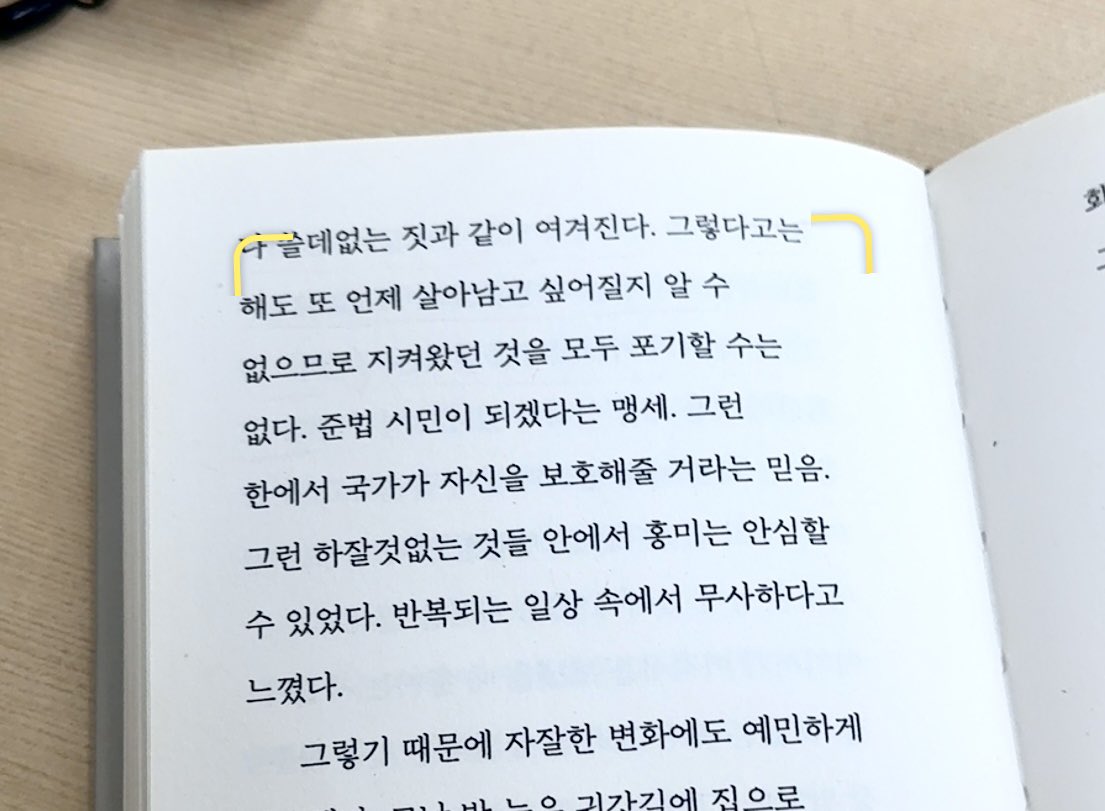 다 쓸데없는 짓과 같이 여겨진다. 그렇다고는
해도 또 언제 살아남고 싶어질지 알 수
없으므로 지켜왔던 것을 모두 포기할 수는
없다. 준법 시민이 되겠다는 맹세. 그런
한에서 국가가 자신을 보호해줄 거라는 믿음.
그런 하잘것없는 것들 안에서 홍미는 안심할
수 있었다. 반복되는 일상 속에서 무사하다고
느꼈다.
그렇기 때문에 자잘한 변화에도 예민하게
밤 늦은 귀갓길에 집으로